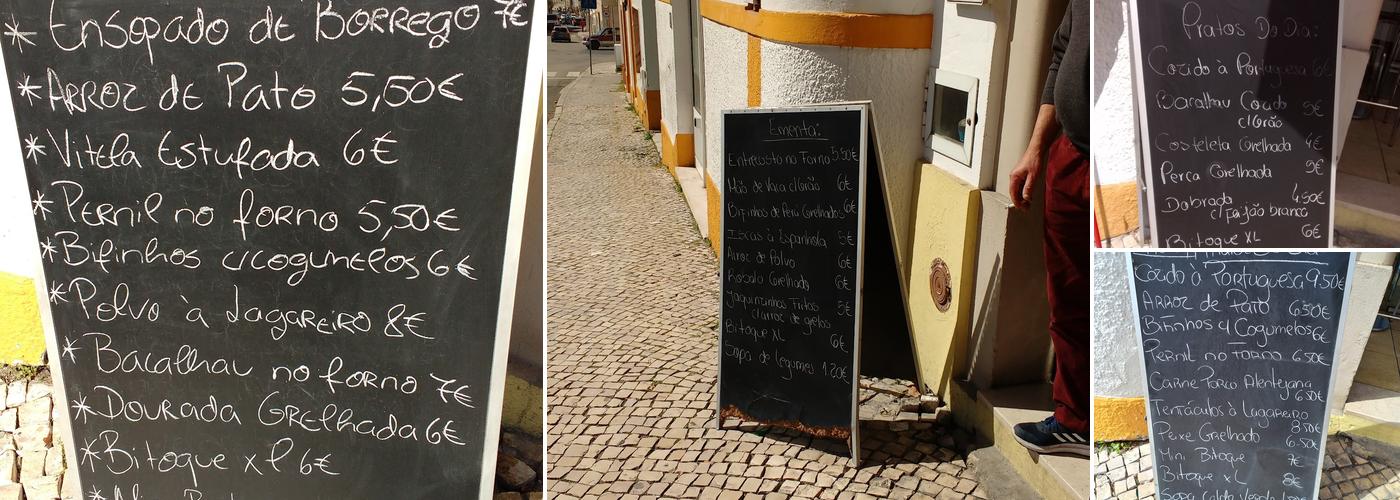 * Ensopado de Borrego 7€
* Arroz de Pato 5,50€
* Vitela Estufada 6€
* Pernil no forno 5,50€
* Bifinhos c/cogumelos 6€
* Polvo à Lagareiro 8€
* Bacalhau no forno 7€
* Dourada Grelhada 6€
* Bitoque xl 6€
Ementa:
Entrecosto no Forno 5.50€
Mão de Vaca c/Grão 6€
Bifinhos de Perú Grelhados 6€
Iscas à Espanhola 5€
Arroz de Polvo 6€
Robalo Grelhado 6€
Jaquinzinhos Fritos 5€
c/arroz de grelos
Bitoque XL 6€
Sopa de legumes 1.20€
Pratos Do Dia:
Cozido à Portuguesa 6€
Bacalhau Cozido 5€
c/Grão
Costeleta Grelhada 4€
Perca Grelhada 5€
Dobrada 4.50€
c/Feijão branco
Bitoque XL 6€
Cozido à Portuguesa 9.50€
Arroz de Pato 6.50€
Bifinhos c/ Cogumelos 6€
Pernil no Forno 6.50€
Carne Porco Alentejana
6.50€
Tentáculos à Lagareiro
8.50€
Peixe Grelhado 6.50€
Mini Bitoque 7€
Bitoque XL 8€
Sopa caldo Verde